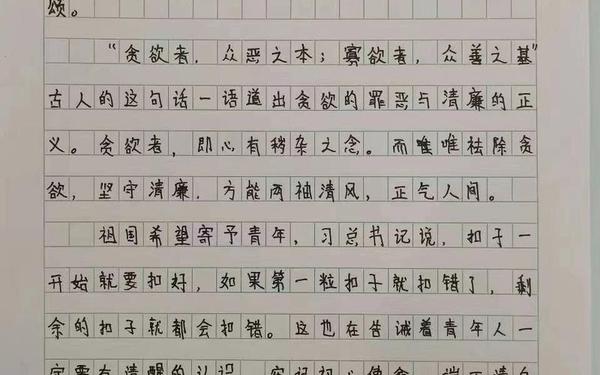 颂。
“贪欲者，众恶之本；寡欲者，众善之基”
古人的这句话一语道出贪欲的罪恶与清廉的正
义。贪欲者，即心有秽杂之念。而唯唯祛除贪
欲，坚守清廉，方能两袖清风，正气人间。
祖国希望寄予青年，习总书记说，扣子一
开始就要扣好，如果第一粒扣子就扣错了，剩
余的扣子就都会扣错。这也在告诫着青年人一
定要有清醒的认识，牢记初心使命，端正清白